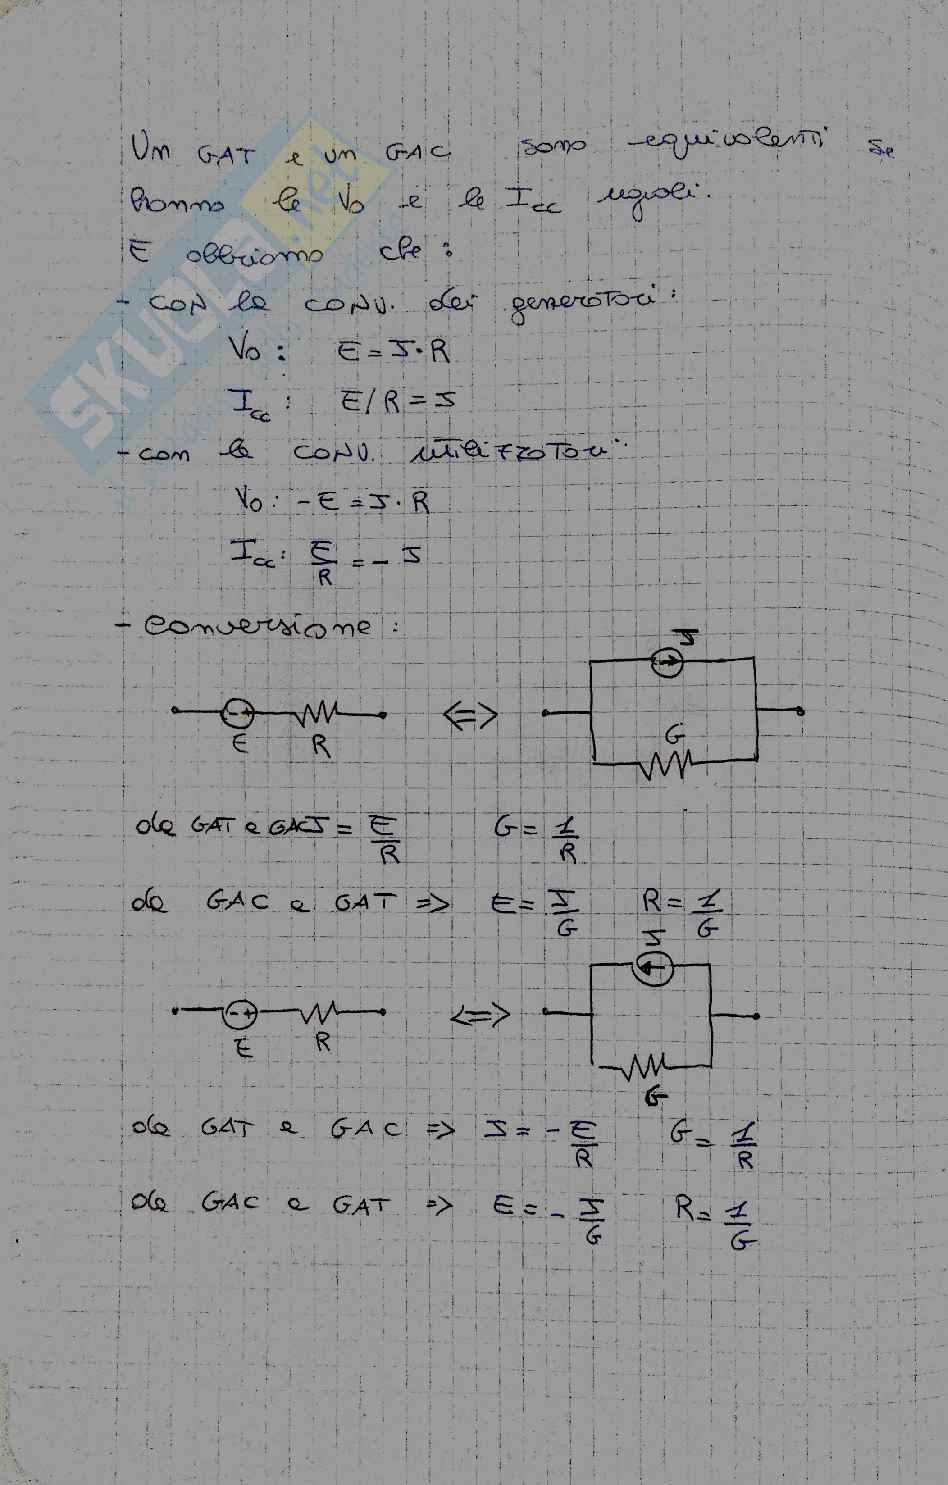 Un GAT e un GAC sono equivalenti se
hanno le V₀ e le Icc uguali.
E abbiamo che:
- con la conv. dei generatori:
V₀: E = J·R
Icc: E/R = J
- con la conv. utilizzatori:
V₀: -E = J·R
Icc: E/R = -J
- conversione:
J
- + G
E R
da GAT a GAC J = E/R G = 1/R
da GAC a GAT => E = J/G R = 1/G
J
- +
E R
G
da GAT a GAC => J = -E/R G = 1/R
da GAC a GAT => E = -J/G R = 1/G
SKUOLA.net